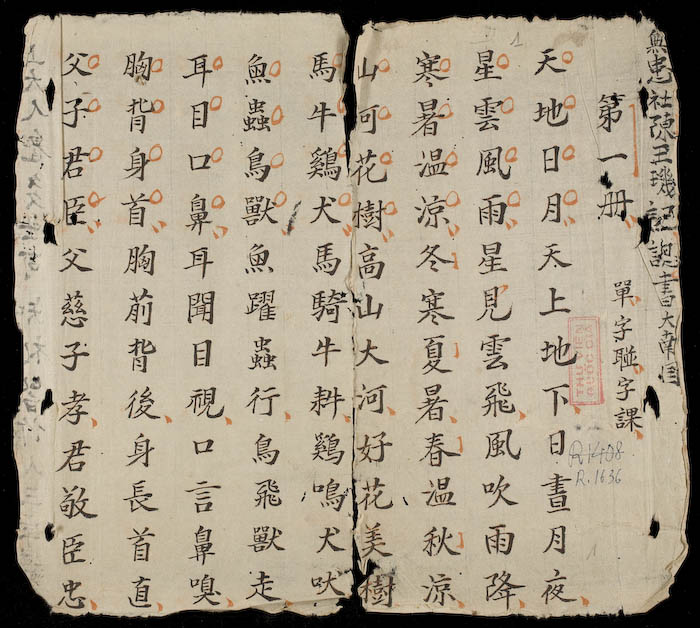 忠社陳玉璣記認書大南国
第一册
單字聮字課
天地日月天上地下日晝月夜
星雲風雨星見雲飛風吹雨降
寒暑温涼冬寒夏暑春温秋涼
山河花樹高山大河好花美樹
馬牛鷄犬馬騎牛耕鷄鳴犬吠
魚蟲鳥獸魚躍蟲行鳥飛獸走
耳目口鼻耳聞目視口言鼻嗅
胸背身首胸前背後身長首直
父子君臣父慈子孝君敬臣忠
上大人
THƯ VIỆN
QUỐC GIA
R.1408
R.1636
1
1